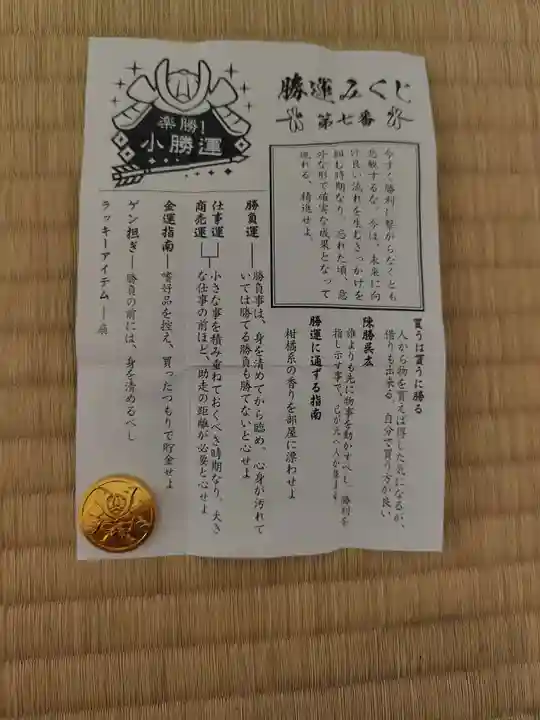 勝運みくじ
第七番
楽勝!
小勝運
今すぐ勝利に繋がらなくとも
悲観するな。今は、未来に向
け良い流れを生むきっかけを
掴む時期なり。忘れた頃、意
外な形で確実な成果となって
現れる。精進せよ。
貰うは貰うに勝る
人から物を貰えば得した気になるが、
借りも出来る。自分で買う方が良い
陳勝呉広
誰よりも先に物事を動かすべし。勝利を
指し示す事で、己が元へ人が集まる
勝運に通ずる指南
柑橘系の香りを部屋に漂わせよ
勝負運―勝負事は、身を清めてから臨め。心身が汚れて
いては勝てる勝負も勝てないと心せよ
仕事運
商売運
小さな事を積み重ねておくべき時期なり。大き
な仕事の前ほど、助走の距離が必要と心せよ
金運指南―嗜好品を控え、買ったつもりで貯金せよ
ゲン担ぎ―勝負の前には、身を清めるべし
ラッキーアイテム―扇